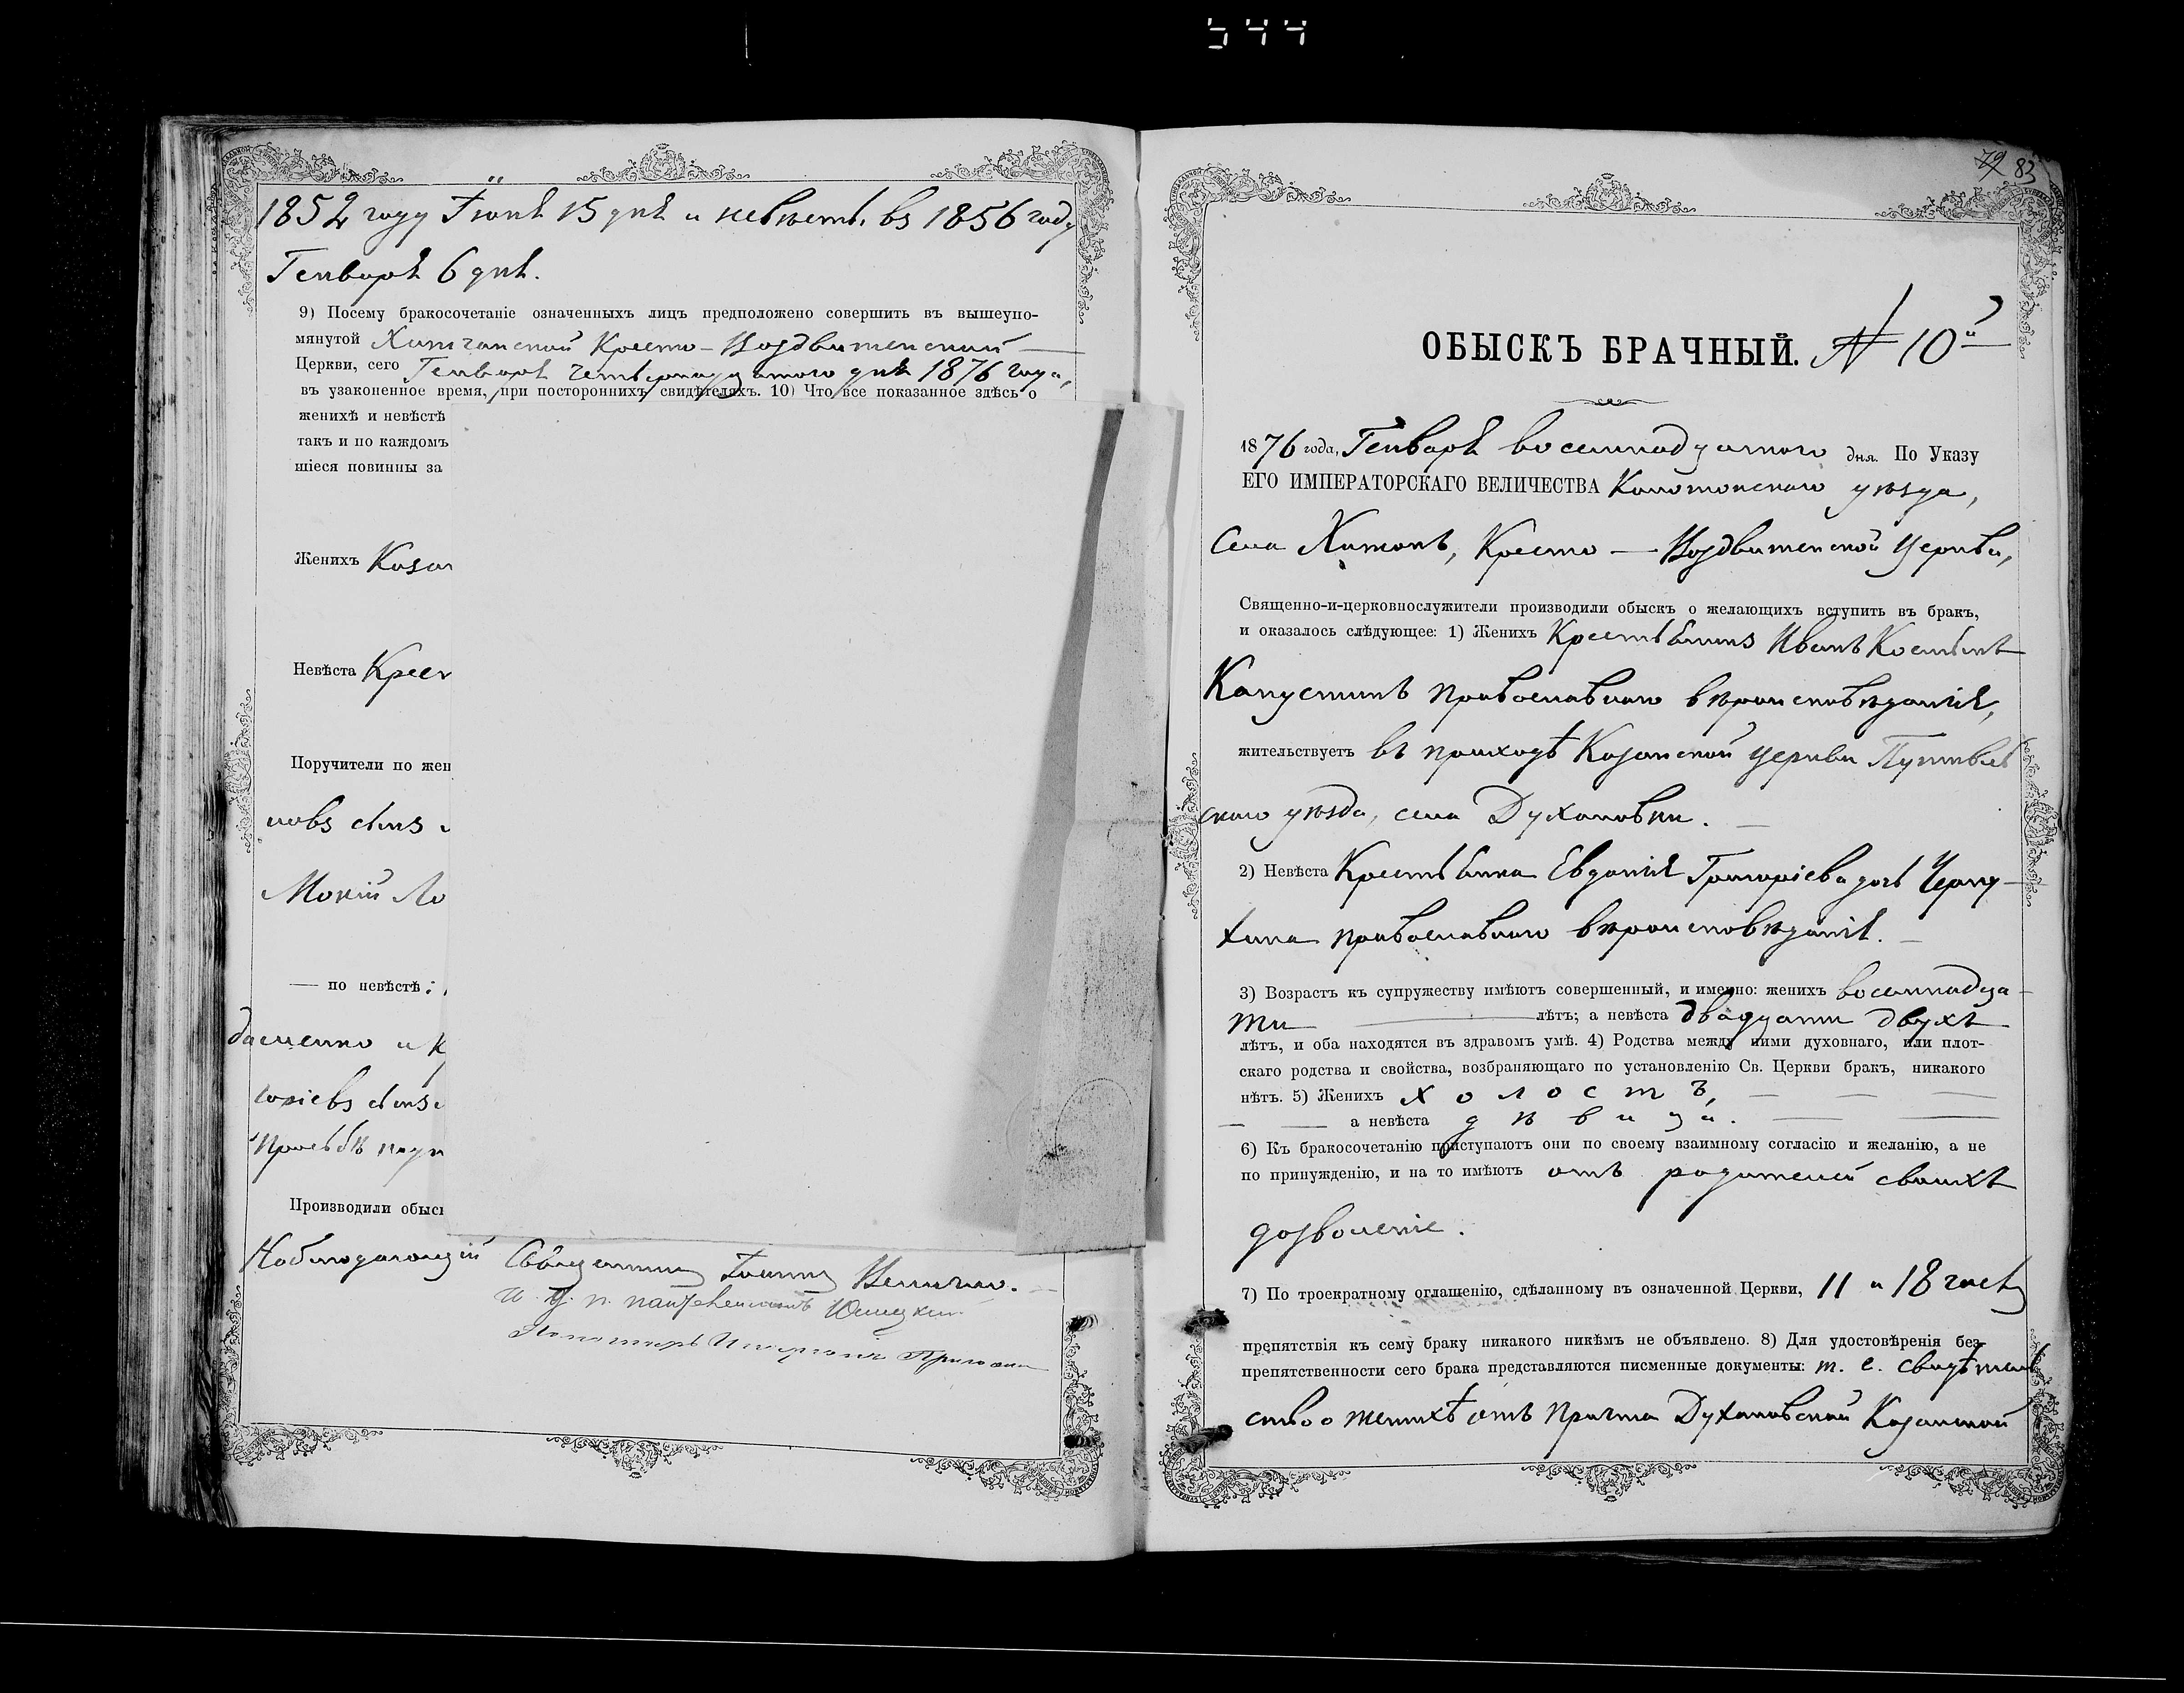 544
1852 году Іюня 15 дня и невѣсты въ 1856 году
Генваря 6 дня.
9) Посему бракосочетаніе означенныхъ лицъ предположено совершить въ вышеупо-
мянутой Хижчанской Кресто-Воздвиженской
Церкви, сего Генваря четырнадцатого дня 1876 года,
въ узаконенное время, при постороннихъ свидѣтеляхъ. 10) Что все показанное здѣсь о
женихѣ и невѣстѣ
такъ и по каждомъ
шіеся повинны за
Женихъ Казач
Невѣста Крест
Поручители по жен
новъ сынъ
Мокій Ло
— по невѣстѣ:
даленко и К
горіевъ сынъ
Просьбѣ подп
Производили обыск
Наблюдающій Священникъ Іоаннъ
Пономарь
79 83
ОБЫСКЪ БРАЧНЫЙ. № 10й
1876 года, Генваря восемнадцатого дня. По Указу
ЕГО ИМПЕРАТОРСКАГО ВЕЛИЧЕСТВА Конотопскаго уѣзда,
Села Хижокъ, Кресто-Воздвиженской Церкви,
Священно-и-церковнослужители производили обыскъ о желающихъ вступить въ бракъ,
и оказалось слѣдующее: 1) Женихъ Крестьянинъ Иванъ
Капустинъ православнаго вѣроисповѣданія,
жительствуетъ въ приходѣ Казанской церкви Путивль
скаго уѣзда, села Духановки.
2) Невѣста Крестьянка Евдокія Григоріева дочь Черну-
хина православнаго вѣроисповѣданія.
3) Возрастъ къ супружеству имѣютъ совершенный, и именно: женихъ восемнадца-
ти лѣтъ; а невѣста двадцати двухъ
лѣтъ, и оба находятся въ здравомъ умѣ. 4) Родства между ними духовнаго, или плот-
скаго родства и свойства, возбраняющаго по установленію Св. Церкви бракъ, никакого
нѣтъ. 5) Женихъ холостъ,
а невѣста дѣвица.
6) Къ бракосочетанію приступаютъ они по своему взаимному согласію и желанію, а не
по принужденію, и на то имѣютъ отъ родителей своихъ
дозволеніе.
7) По троекратному оглашенію, сдѣланному въ означенной Церкви, 11 и 18 числъ
препятствія къ сему браку никакого никѣмъ не объявлено. 8) Для удостовѣренія без-
препятственности сего брака представляются писменные документы: т. е. свидѣтель
ство о женихѣ отъ Причта Духановской Казанской